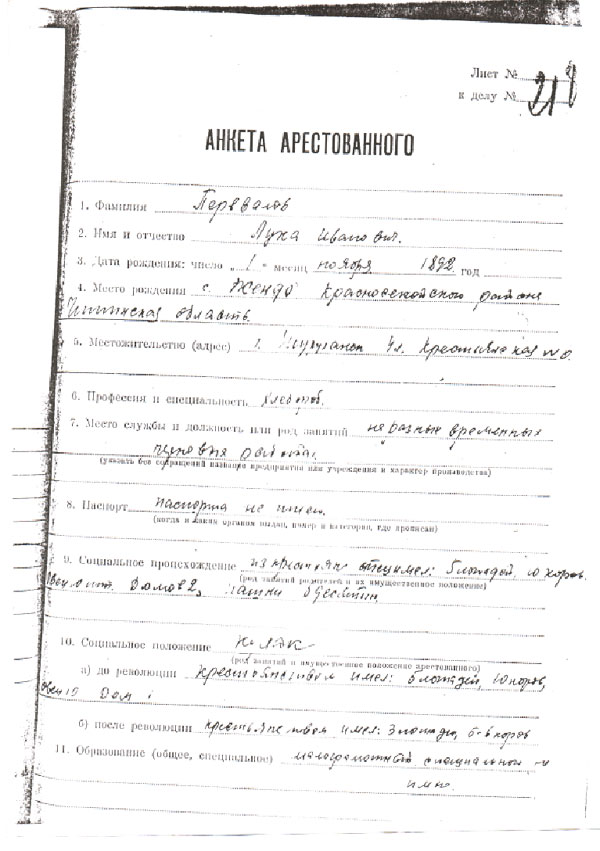 Лист №
к делу № 21
АНКЕТА АРЕСТОВАННОГО
1. Фамилия
2. Имя и отчество Лука Иванович.
3. Дата рождения: число „1“ месяц ноября 1892 год
4. Место рождения с. Жендо Красночикойского района
Читинская область
5. Местожительство (адрес) ул. Крестьянская
6. Профессия и специальность хлебороб.
7. Место службы и должность или род занятий на разных временных
работах.
(указать без сокращений название предприятия или учреждения и характер производства)
8. Паспорт паспорта не имел.
(когда и каким органом выдан, номер и категория, где прописан)
9. Социальное происхождение из крестьян отец имел: 5 лошадей, 10 коров.
(род занятий родителей и их имущественное положение)
Овец шт. Домов 2, пашни десятин
10. Социальное положение Кулак
(род занятий и имущественное положение арестованного)
а) до революции крестьянством имел: 5 лошадей, 10 коров,
овец 10 Дом 1
б) после революции крестьянством имел: 3 лошади, 5-6 коров
11. Образование (общее, специальное) малограмотный специальной не
имею.